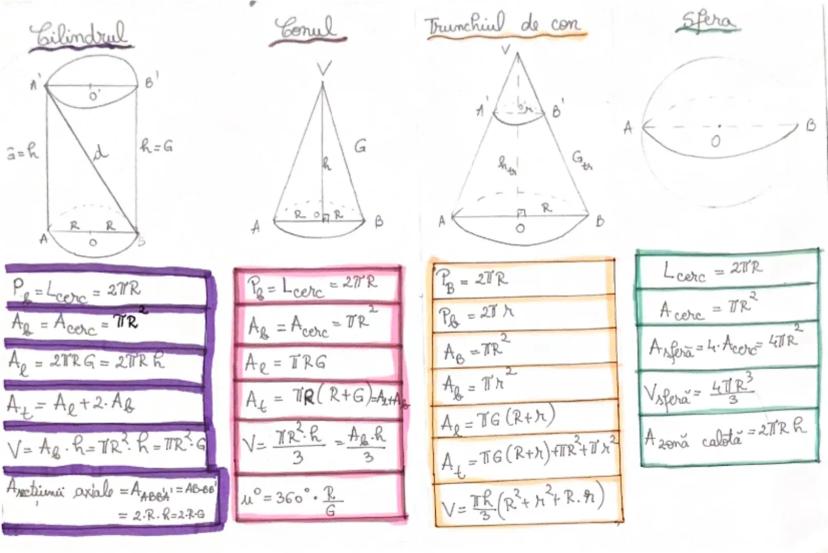 Cilindrul
A'
O'
B'
G=h
d
h=G
A
R
O
R
B
P_b = L_cerc = 2πR
A_b = A_cerc = πR²
A_l = 2πRG = 2πRh
A_t = A_l + 2·A_b
V = A_b·h = πR²·h = πR²·G
A secțiunii axiale = A_ABB'A' = AB·BB'
= 2·R·h = 2·R·G
Conul
V
G
h
A
R
O
R
B
P_b = L_cerc = 2πR
A_b = A_cerc = πR²
A_l = πRG
A_t = πR(R+G) = A_l + A_b
V = πR²·h/3 = A_b·h/3
u° = 360°·R/G
Trunchiul de con
V
A'
O'
r
B'
h_tr
G_tr
A
R
O
B
P_B = 2πR
P_b = 2πr
A_B = πR²
A_b = πr²
A_l = πG(R+r)
A_t = πG(R+r)+πR²+πr²
V = πh/3(R²+r²+R·r)
Sfera
A
O
B
L_cerc = 2πR
A_cerc = πR²
A_sferă = 4·A_cerc = 4πR²
V_sferă = 4πR³/3
A zonă calotă = 2πRh